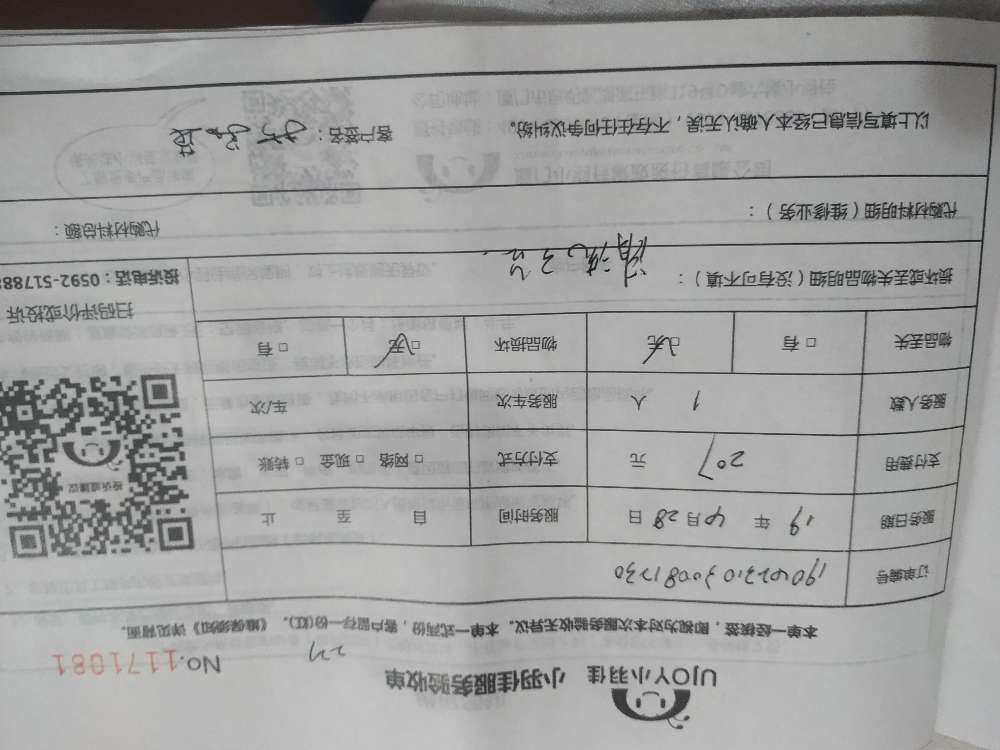 UJOY小羽佳 小羽佳服务验收单 No.1171081
本单一经核签，即视为对本次服务验收无异议。本单一式两份，客户留存一份(红)。《维保须知》详见背面。
订单编号
服务日期 19 年 4 月 28 日 服务时间 自 至 止
支付费用 207 元 支付方式 □ 网络 □ 现金 □ 转账
服务人数 1 人 服务车次 车/次
物品丢失 □ 有 □ 无 物品损坏 □ 无 □ 有
投诉或建议
扫码评价或投诉
投诉电话：0592-51788
损坏或丢失物品明细（没有可不填）：
代购材料明细（维修业务）： 代购材料总额：
以上填写信息已经本人确认无误，不存在任何争议纠纷。 客户签名：